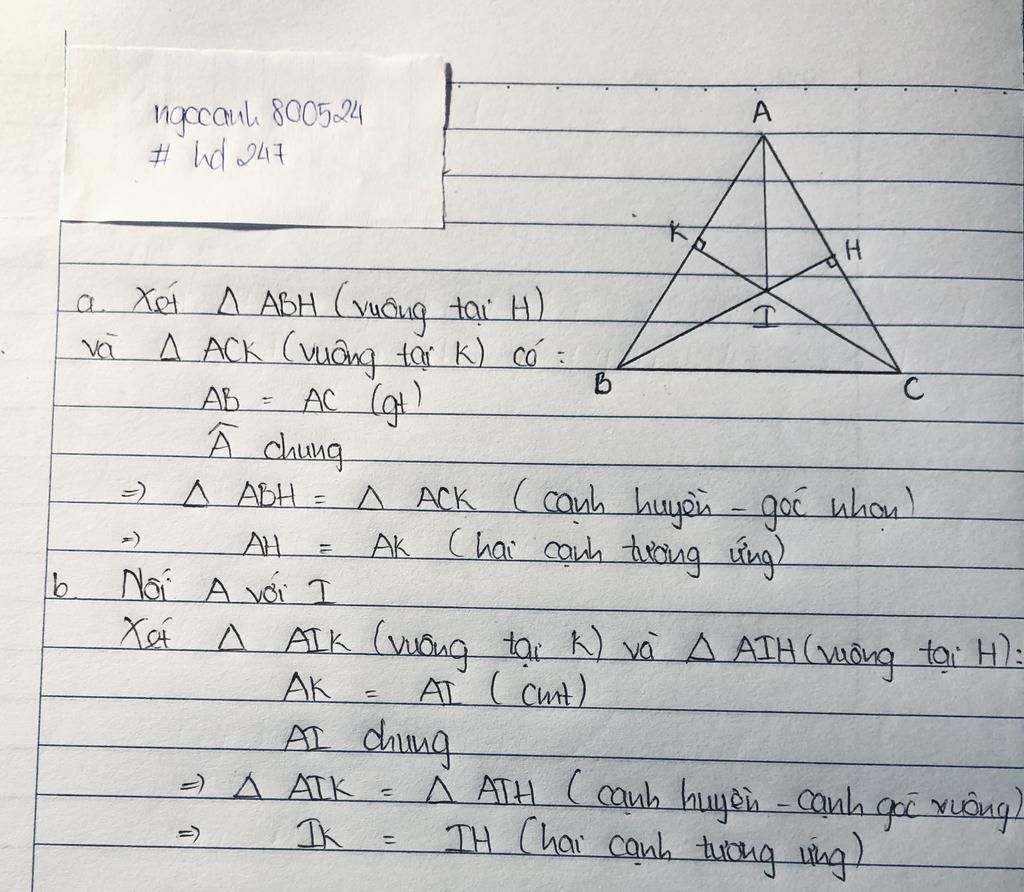 ngocanh 800524
# hd 247
A
K
H
I
B
C
a. Xét Δ ABH (vuông tại H)
và Δ ACK (vuông tại K) có :
AB = AC (gt)
Â chung
=> Δ ABH = Δ ACK ( cạnh huyền - góc nhọn)
=> AH = AK (hai cạnh tương ứng)
b. Nối A với I
Xét Δ AIK (vuông tại K) và Δ AIH (vuông tại H) :
AK = AI ( cmt)
AI chung
=> Δ AIK = Δ AIH ( cạnh huyền - cạnh góc vuông)
=> IK = IH (hai cạnh tương ứng)